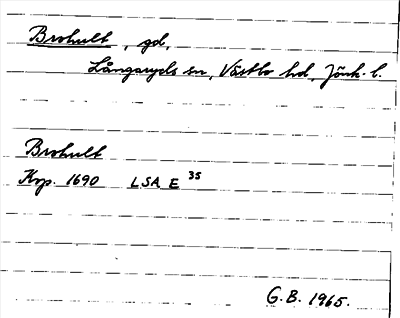 Brohult, gd,
Långaryds sn, Västbo hd, Jönk. l.
Brohult
Krp. 1690 LSA E 35
G.B. 1965.